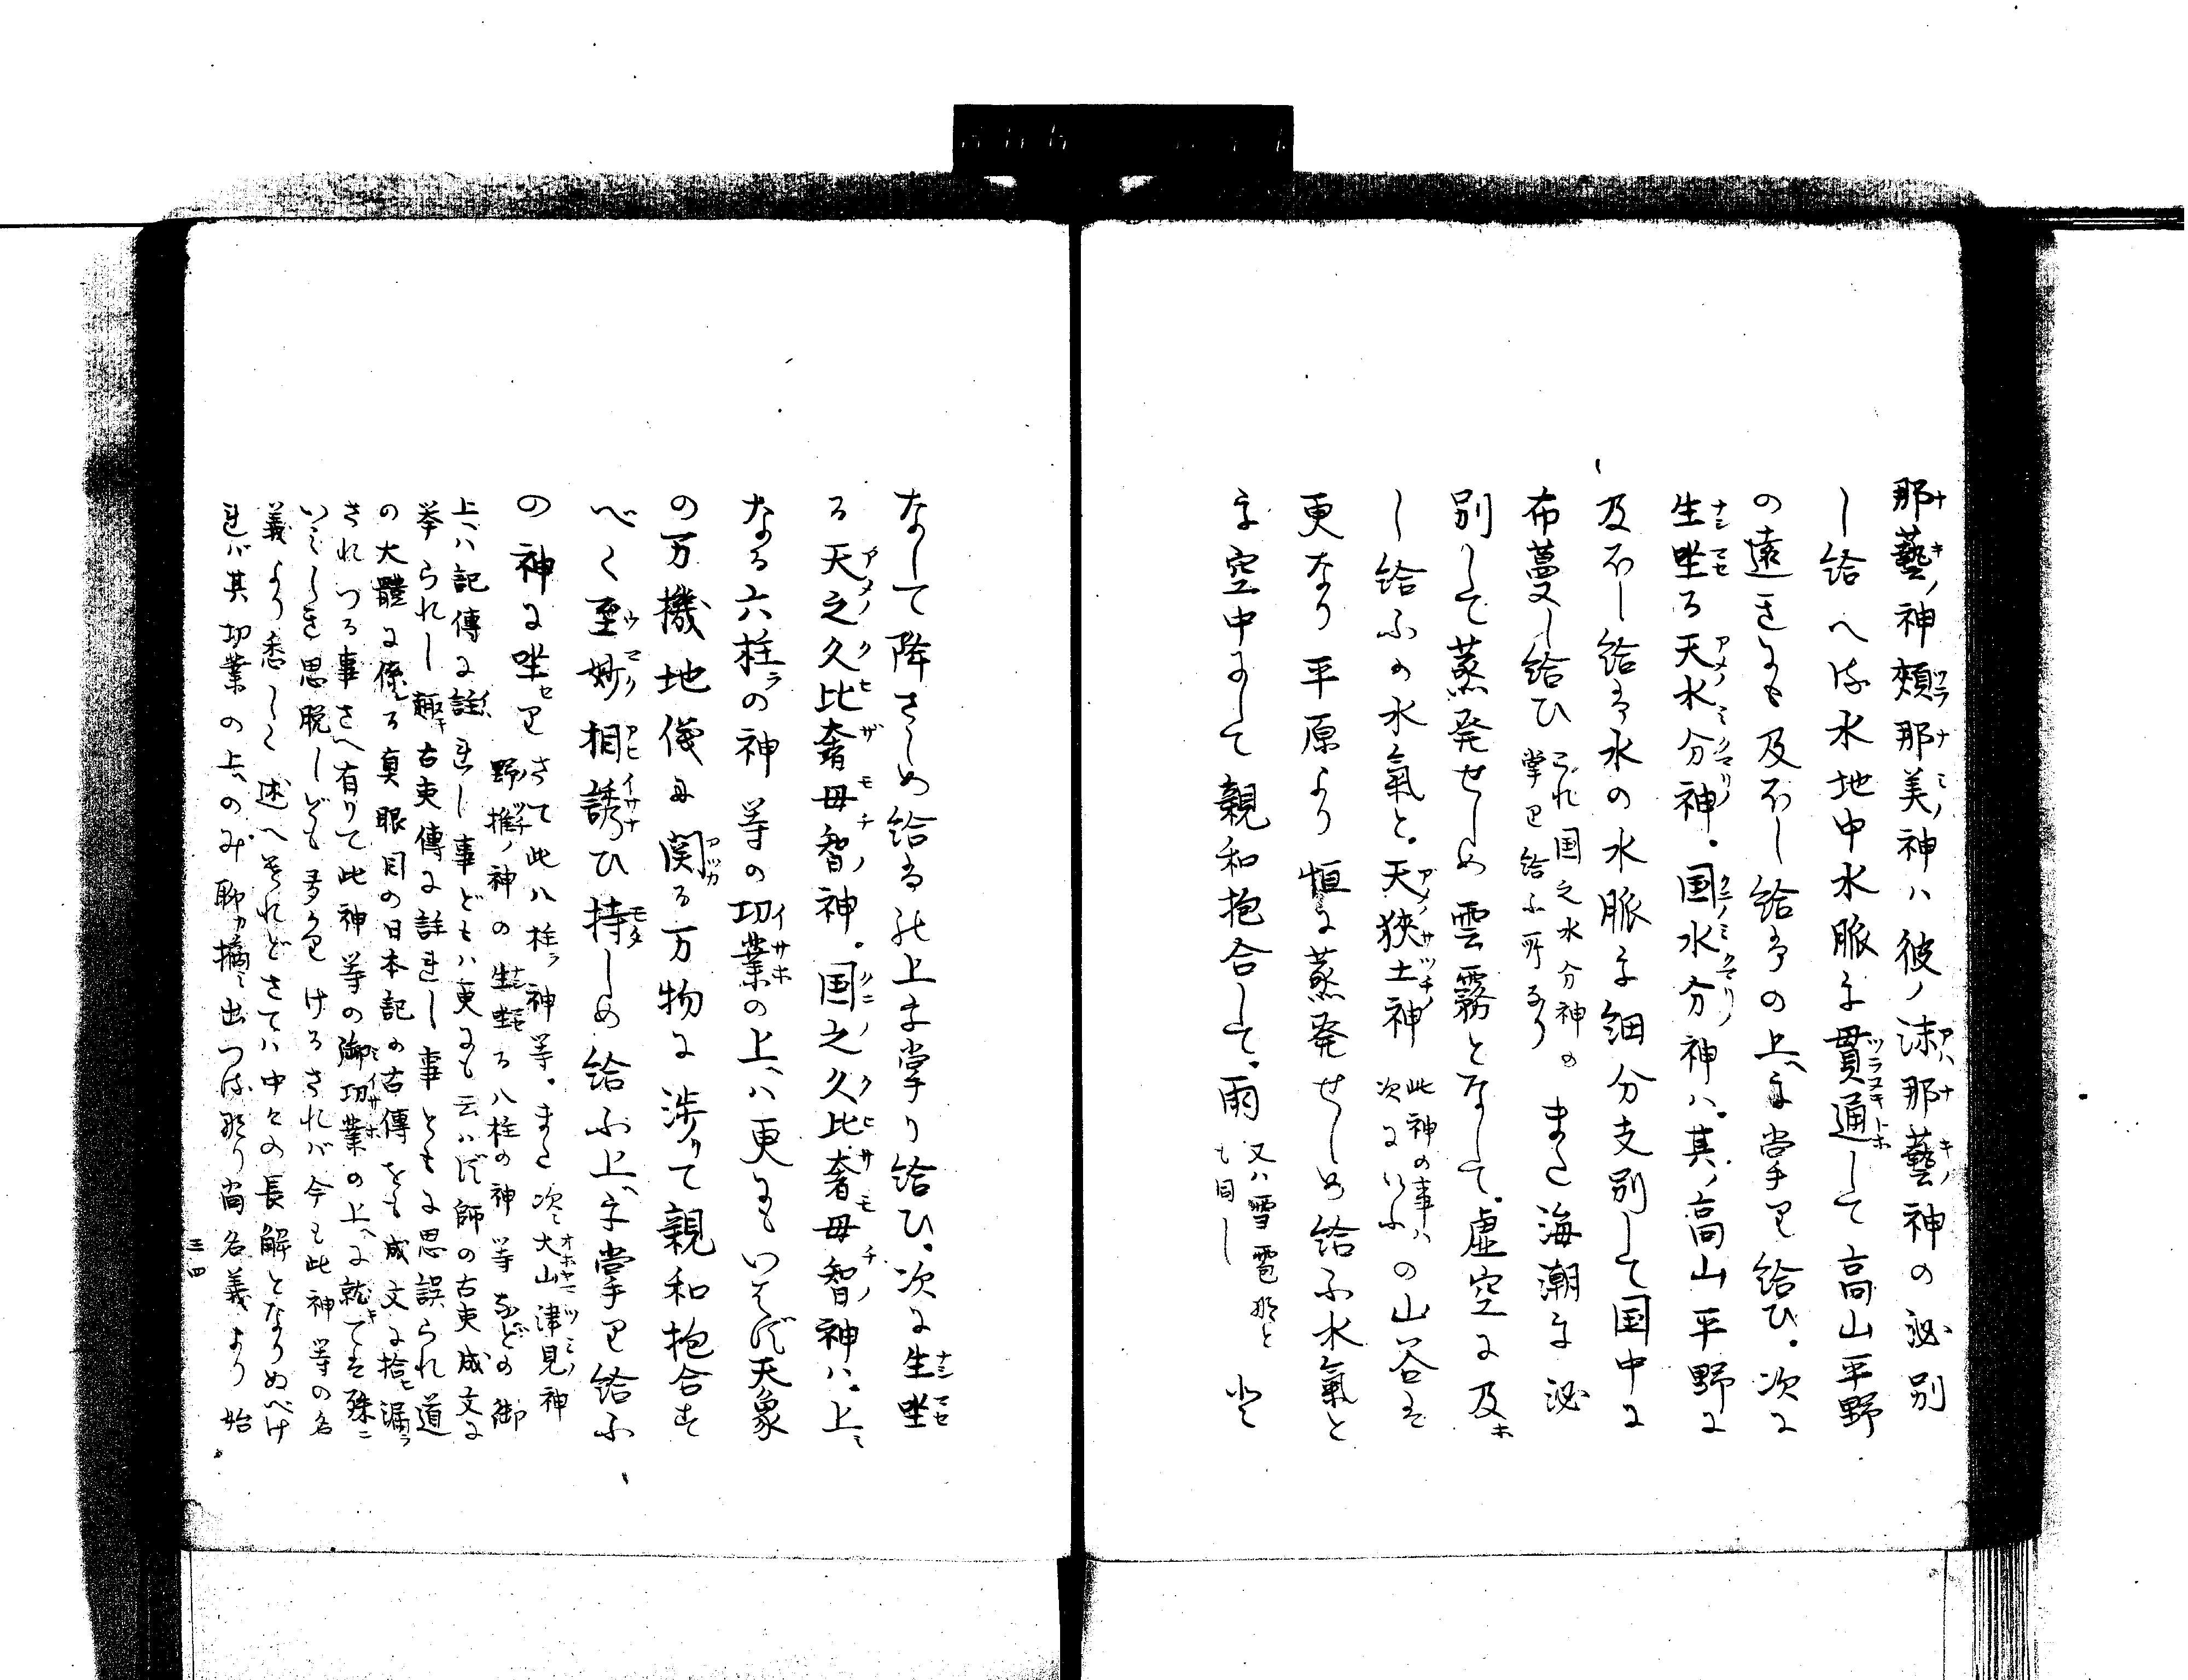 那藝ノ神頬那美ノ神ハ彼ノ沫那藝ノ神の泌別
し給へる水地中水脈を貫通して高山平野
の遠きにも及ぼし給ふの上を掌り給ひ。次に
生坐る天水分神。国水分神ハ。其ノ高山平野に
及ぼし給ふ水の水脈を細分支別して国中に
布蔓し給ひ これ国之水分神の掌り給ふ所なり。 また海潮を泌
別して蒸発せしめ雲霧となして。虚空に及ホ
し給ふの水氣と。天狹土神 此神の事ハ次にいふ の山谷は
更なり平原より恒に蒸発せしめ給ふ水氣と
を空中にして親和抱合して。雨 又ハ雪雹なども同し と
なして降さしめ給ふ上を掌り給ひ。次に生坐
る天之久比奢母智ノ神。国之久比奢母智ノ神ハ。上ミ
なる六柱ラの神等の功業の上ハ更にもいはず天象
の万機地儀に関る万物に渉りて親和抱合す
べく至妙相誘ひ持しめ給ふ上を掌り給ふ
の神に坐セり さて此八柱ラ神等。また次ニ大山津見神
野椎ノ神の生坐る八柱の神等などの御
上ハ記傳に註れし事どもハ更にも云ハず師の古史成文に
挙られし趣キ古史傳に註れし事ともに思誤られ道
の大體に係る真眼目の日本記の古傳をも成文に拾ヒ漏ラ
されつる事さへ有りて此神等の御功業の上に就キては殊ニ
いミしき思脱しども多かりけるされバ今も此神等の名
義より悉しく述へそれどさてハ中々の長解となりぬべけ
れバ其功業の上のみ聊カ摘ミ出つる也尚名義より始
三四